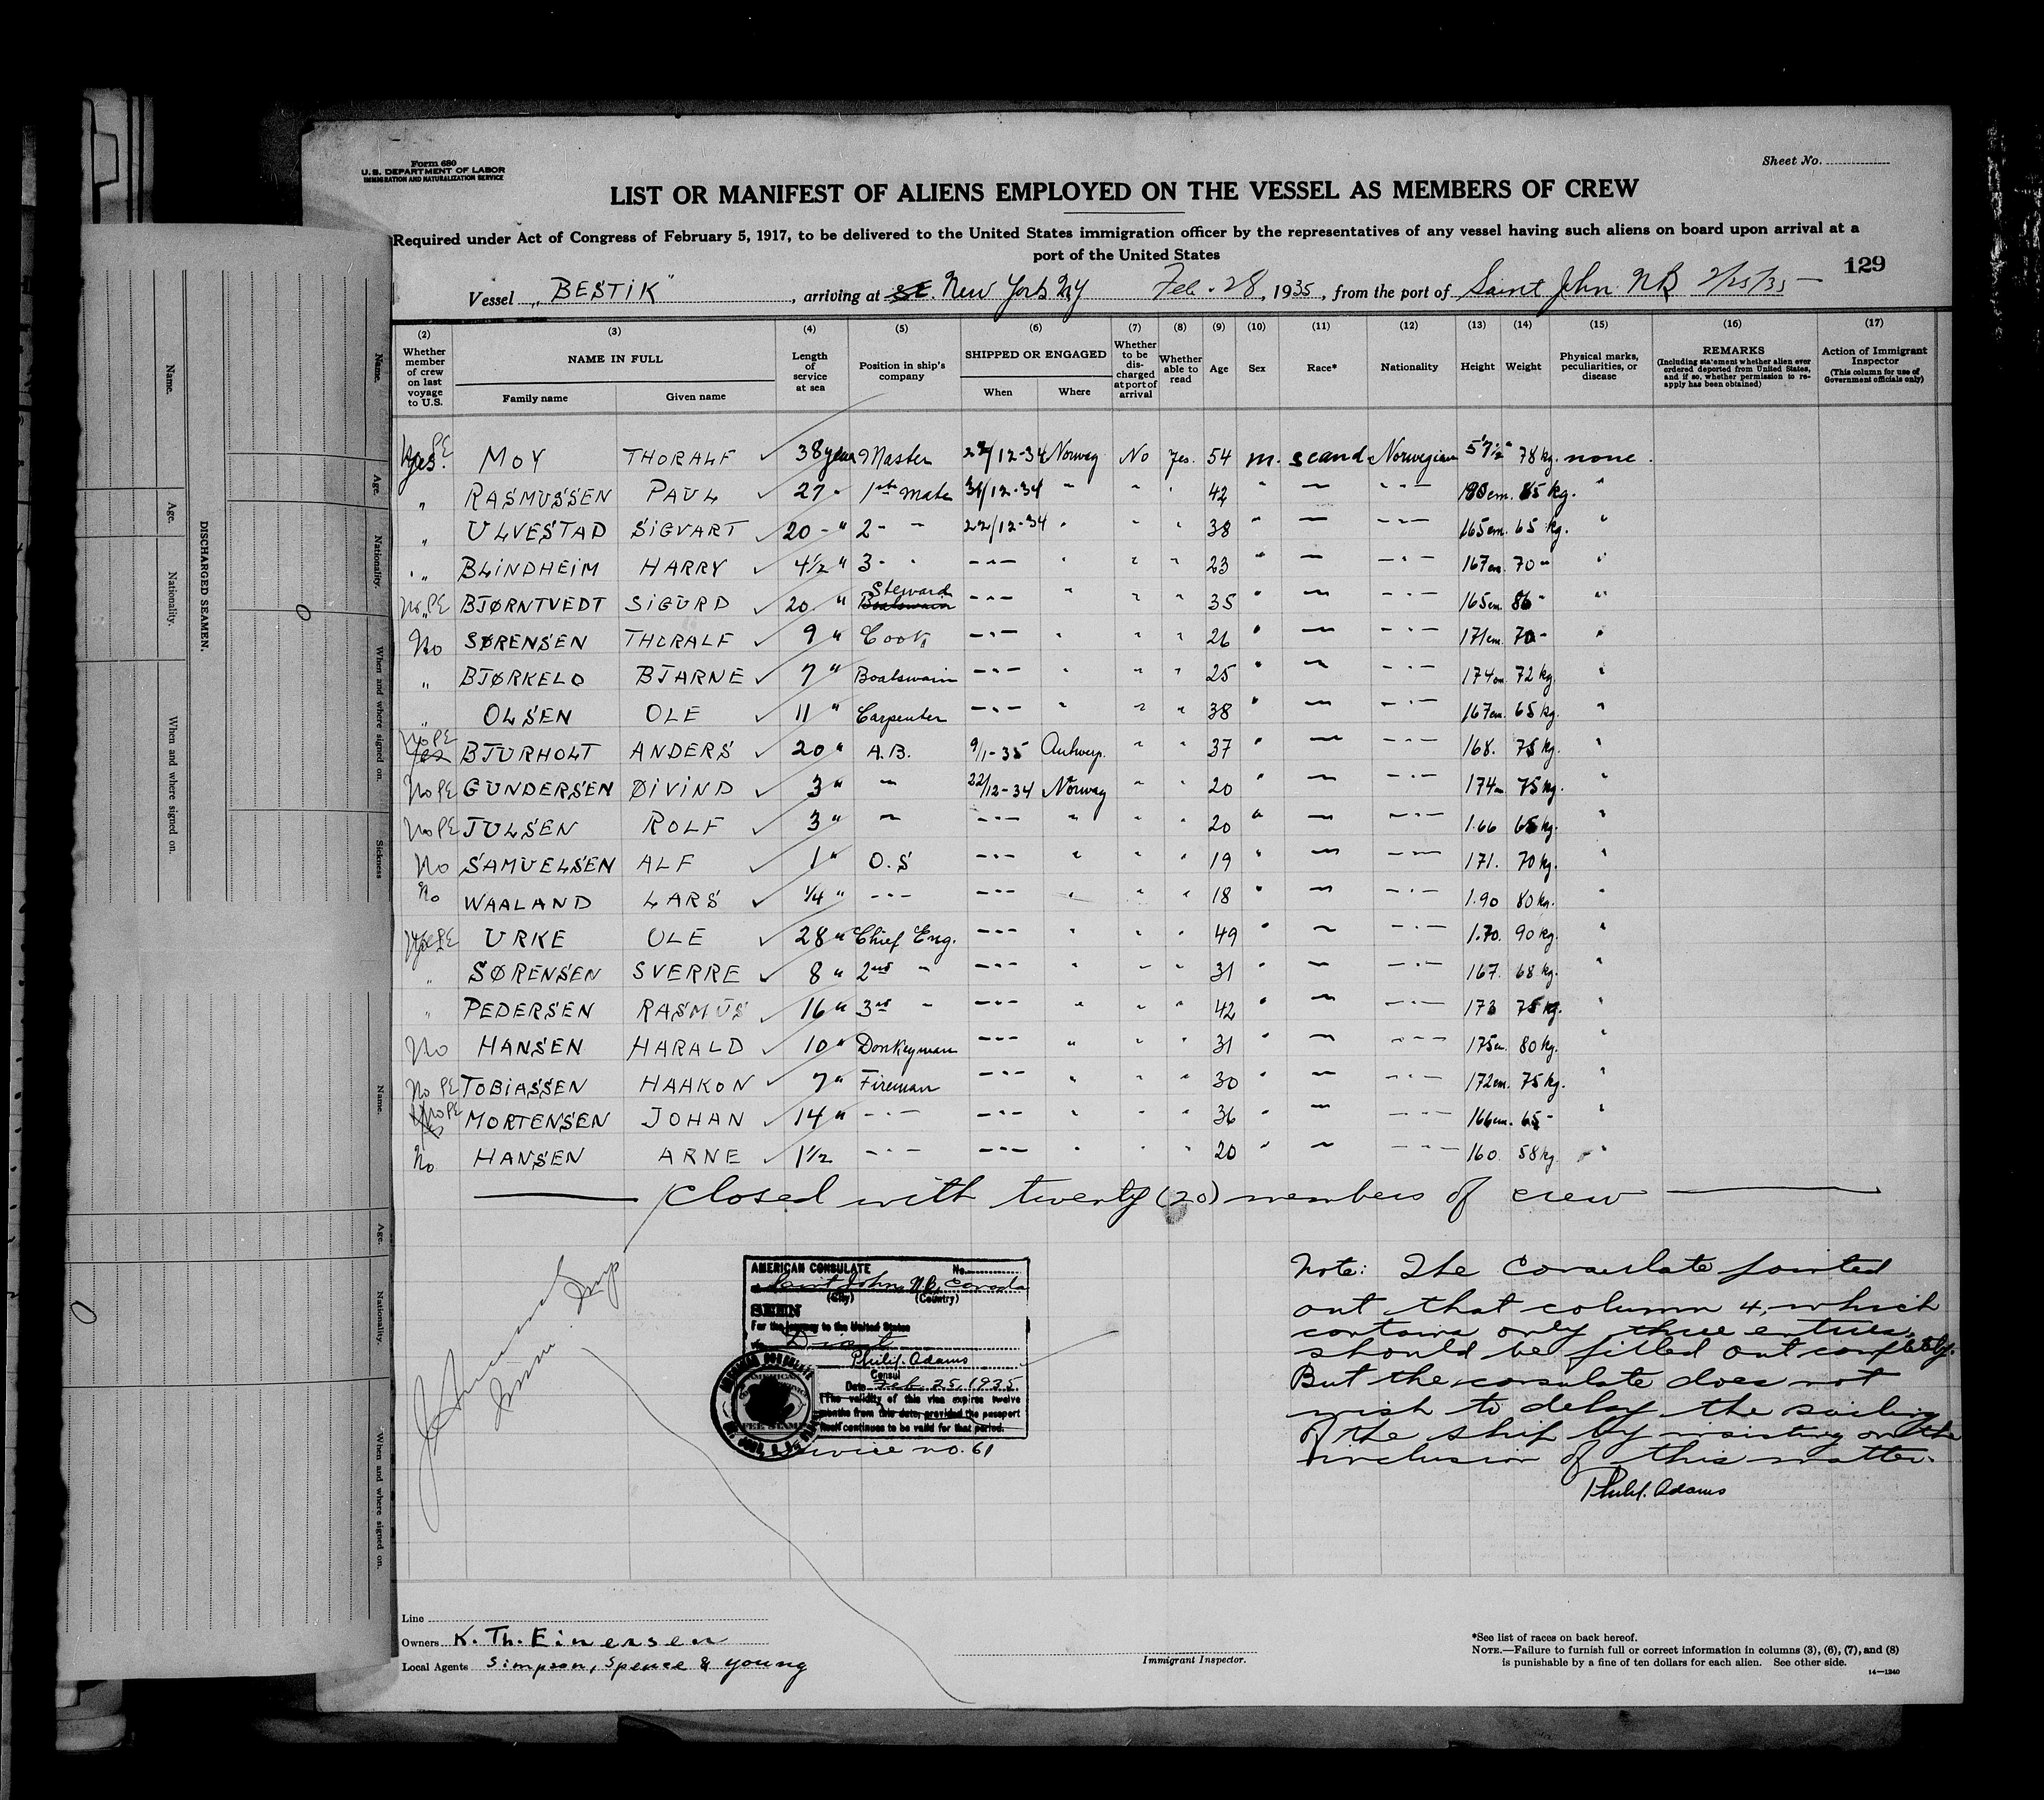 Form 680
U. S. DEPARTMENT OF LABOR
IMMIGRATION AND NATURALIZATION SERVICE
Sheet No.
LIST OR MANIFEST OF ALIENS EMPLOYED ON THE VESSEL AS MEMBERS OF CREW
Required under Act of Congress of February 5, 1917, to be delivered to the United States immigration officer by the representatives of any vessel having such aliens on board upon arrival at a
port of the United States
129
Vessel „BESTIK", arriving at New York NY Feb. 28, 1935, from the port of Saint John NB 2/25/35
(2) (3) (4) (5) (6) (7) (8) (9) (10) (11) (12) (13) (14) (15) (16) (17)
Whether member of crew on last voyage to U.S.
NAME IN FULL
Family name Given name
Length of service at sea
Position in ship's company
SHIPPED OR ENGAGED
When Where
Whether to be discharged at port of arrival
Whether able to read
Age
Sex
Race*
Nationality
Height
Weight
Physical marks, peculiarities, or disease
REMARKS
(Including statement whether alien ever ordered deported from United States, and if so, whether permission to reapply has been obtained)
Action of Immigrant Inspector
(This column for use of Government officials only)
Yes. MOY THORALF 38 years Master 22/12-34 Norway No Yes. 54 m. scand Norwegian 5'7½" 78 kg. none.
„ RASMUSSEN PAUL 27 " 1st mate 31/12-34 " " " 42 " — - " - 180 cm. 85 kg. "
„ ULVESTAD SIGVART 20 - " 2 - " 22/12-34 " " " 38 " — - " - 165 cm. 65 kg. "
„ BLINDHEIM HARRY 4½ " 3 - " - " - " " " 23 " — - " - 167 cm. 70 - "
No PE BJØRNTVEDT SIGURD 20 " Steward Boatswain - " - " " " 35 " — - " - 165 cm. 86 - "
No SØRENSEN THORALF 9 " Cook - " - " " " 26 " — - " - 171 cm. 70 - "
„ BJØRKELO BJARNE 7 " Boatswain - " - " " " 25 " — - " - 174 cm. 72 kg. "
„ OLSEN OLE 11 " Carpenter - " - " " " 38 " — - " - 167 cm. 65 kg. "
No PE Yes BJURHOLT ANDERS 20 " A.B. 9/1-35 Antwerp. " " 37 " — - " - 168. 75 kg. "
No PE GUNDERSEN ØIVIND 3 " " 22/12-34 Norway " " 20 " — - " - 174 75 kg. "
No PE JULSEN ROLF 3 " " - " - " " " 20 " — - " - 1.66 65 kg. "
No SAMUELSEN ALF 1 " O.S - " - " " " 19 " — - " - 171. 70 kg. "
No WAALAND LARS ¼ " - " - - " - " " " 18 " — - " - 1.90 80 kg. "
URKE OLE 28 " Chief Eng. - " - " " " 49 " — - " - 1.70. 90 kg. "
„ SØRENSEN SVERRE 8 " 2nd " - " - " " " 31 " — - " - 167. 68 kg. "
„ PEDERSEN RASMUS 16 " 3rd " - " - " " " 42 " — - " - 173 75 kg. "
No HANSEN HARALD 10 " Donkeyman - " - " " " 31 " — - " - 175 80 kg. "
No PE TOBIASSEN HAAKON 7 " Fireman - " - " " " 30 " — - " - 172 cm. 75 kg. "
No PE MORTENSEN JOHAN 14 " - " - - " - " " " 36 " — - " - 166 cm. 65 - "
No HANSEN ARNE 1½ - " - - " - " " " 20 " — - " - 160. 58 kg. "
closed with twenty (20) members of crew
Imm. Insp
AMERICAN CONSULATE No.
Saint John, N.B. Canada
(City) (Country)
SEEN
For the journey to the United States
Philip Adams
Consul
Date Feb. 25, 1935
The validity of this visa expires twelve
months from this date, provided the passport
itself continues to be valid for that period.
AMERICAN CONSULATE
AMERICAN
FEE STAMP
Service no. 61
Note: The Consulate pointed
out that column 4, which
contains only three entries,
should be filled out completely.
But the consulate does not
wish to delay the sailing
of the ship by insisting on the
inclusion of this matter.
Philip Adams
Line
Owners K. Th. Einersen
Local Agents Simpson, Spence & Young
Immigrant Inspector.
*See list of races on back hereof.
NOTE.—Failure to furnish full or correct information in columns (3), (6), (7), and (8)
is punishable by a fine of ten dollars for each alien. See other side.
14—1240
DISCHARGED SEAMEN.
Name. Age. Nationality. When and where signed on.
Name. Age. Nationality. When and where signed on. Sickness
Name. Age. Nationality. When and where signed on.
0
0